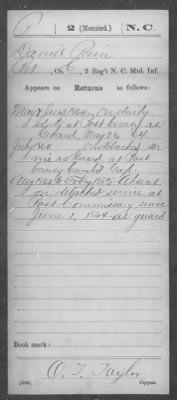 P 2 (Mounted.) N.C.
Daniel Pein
Pvt, Co. C, 2 Reg't N. C. Mtd. Inf.
Appears on
Returns as follows:
May & June 1864, On daily
duty at Post Comsy as
Guard, May 26, 64.
July 64 Detached ser
vice as Guard at Post
Comsy Cumb'd Gap.
Aug 1864 to Feby 1865 Absent
on detached service at
Post Commissary since
June 1, 1864 as guard
Book mark:
O. T. Taylor
Copyist.